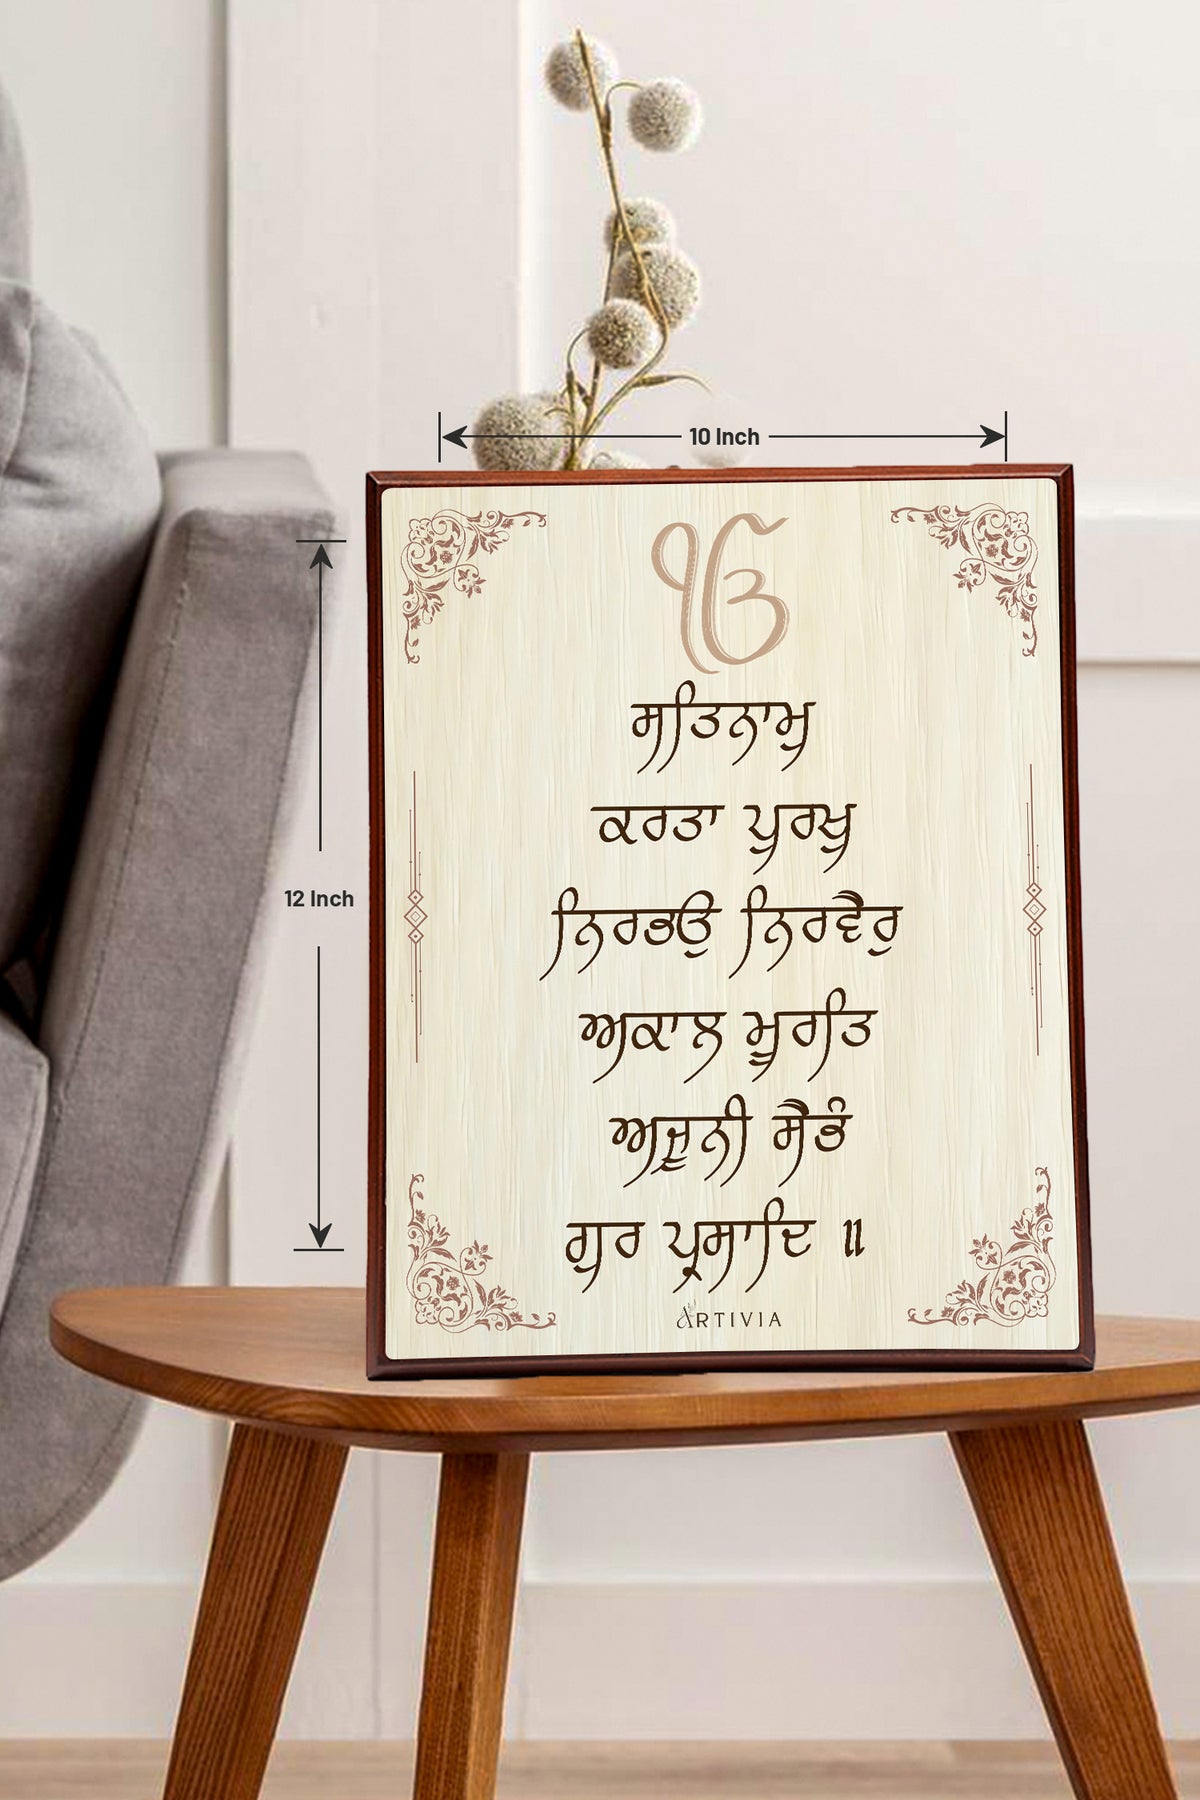 10 Inch
12 Inch
ੴ
ਸਤਿਨਾਮੁ
ਕਰਤਾ ਪੁਰਖੁ
ਨਿਰਭਉ ਨਿਰਵੈਰੁ
ਅਕਾਲ ਮੂਰਤਿ
ਅਜੂਨੀ ਸੈਭੰ
ਗੁਰ ਪ੍ਰਸਾਦਿ ॥
ARTIVIA